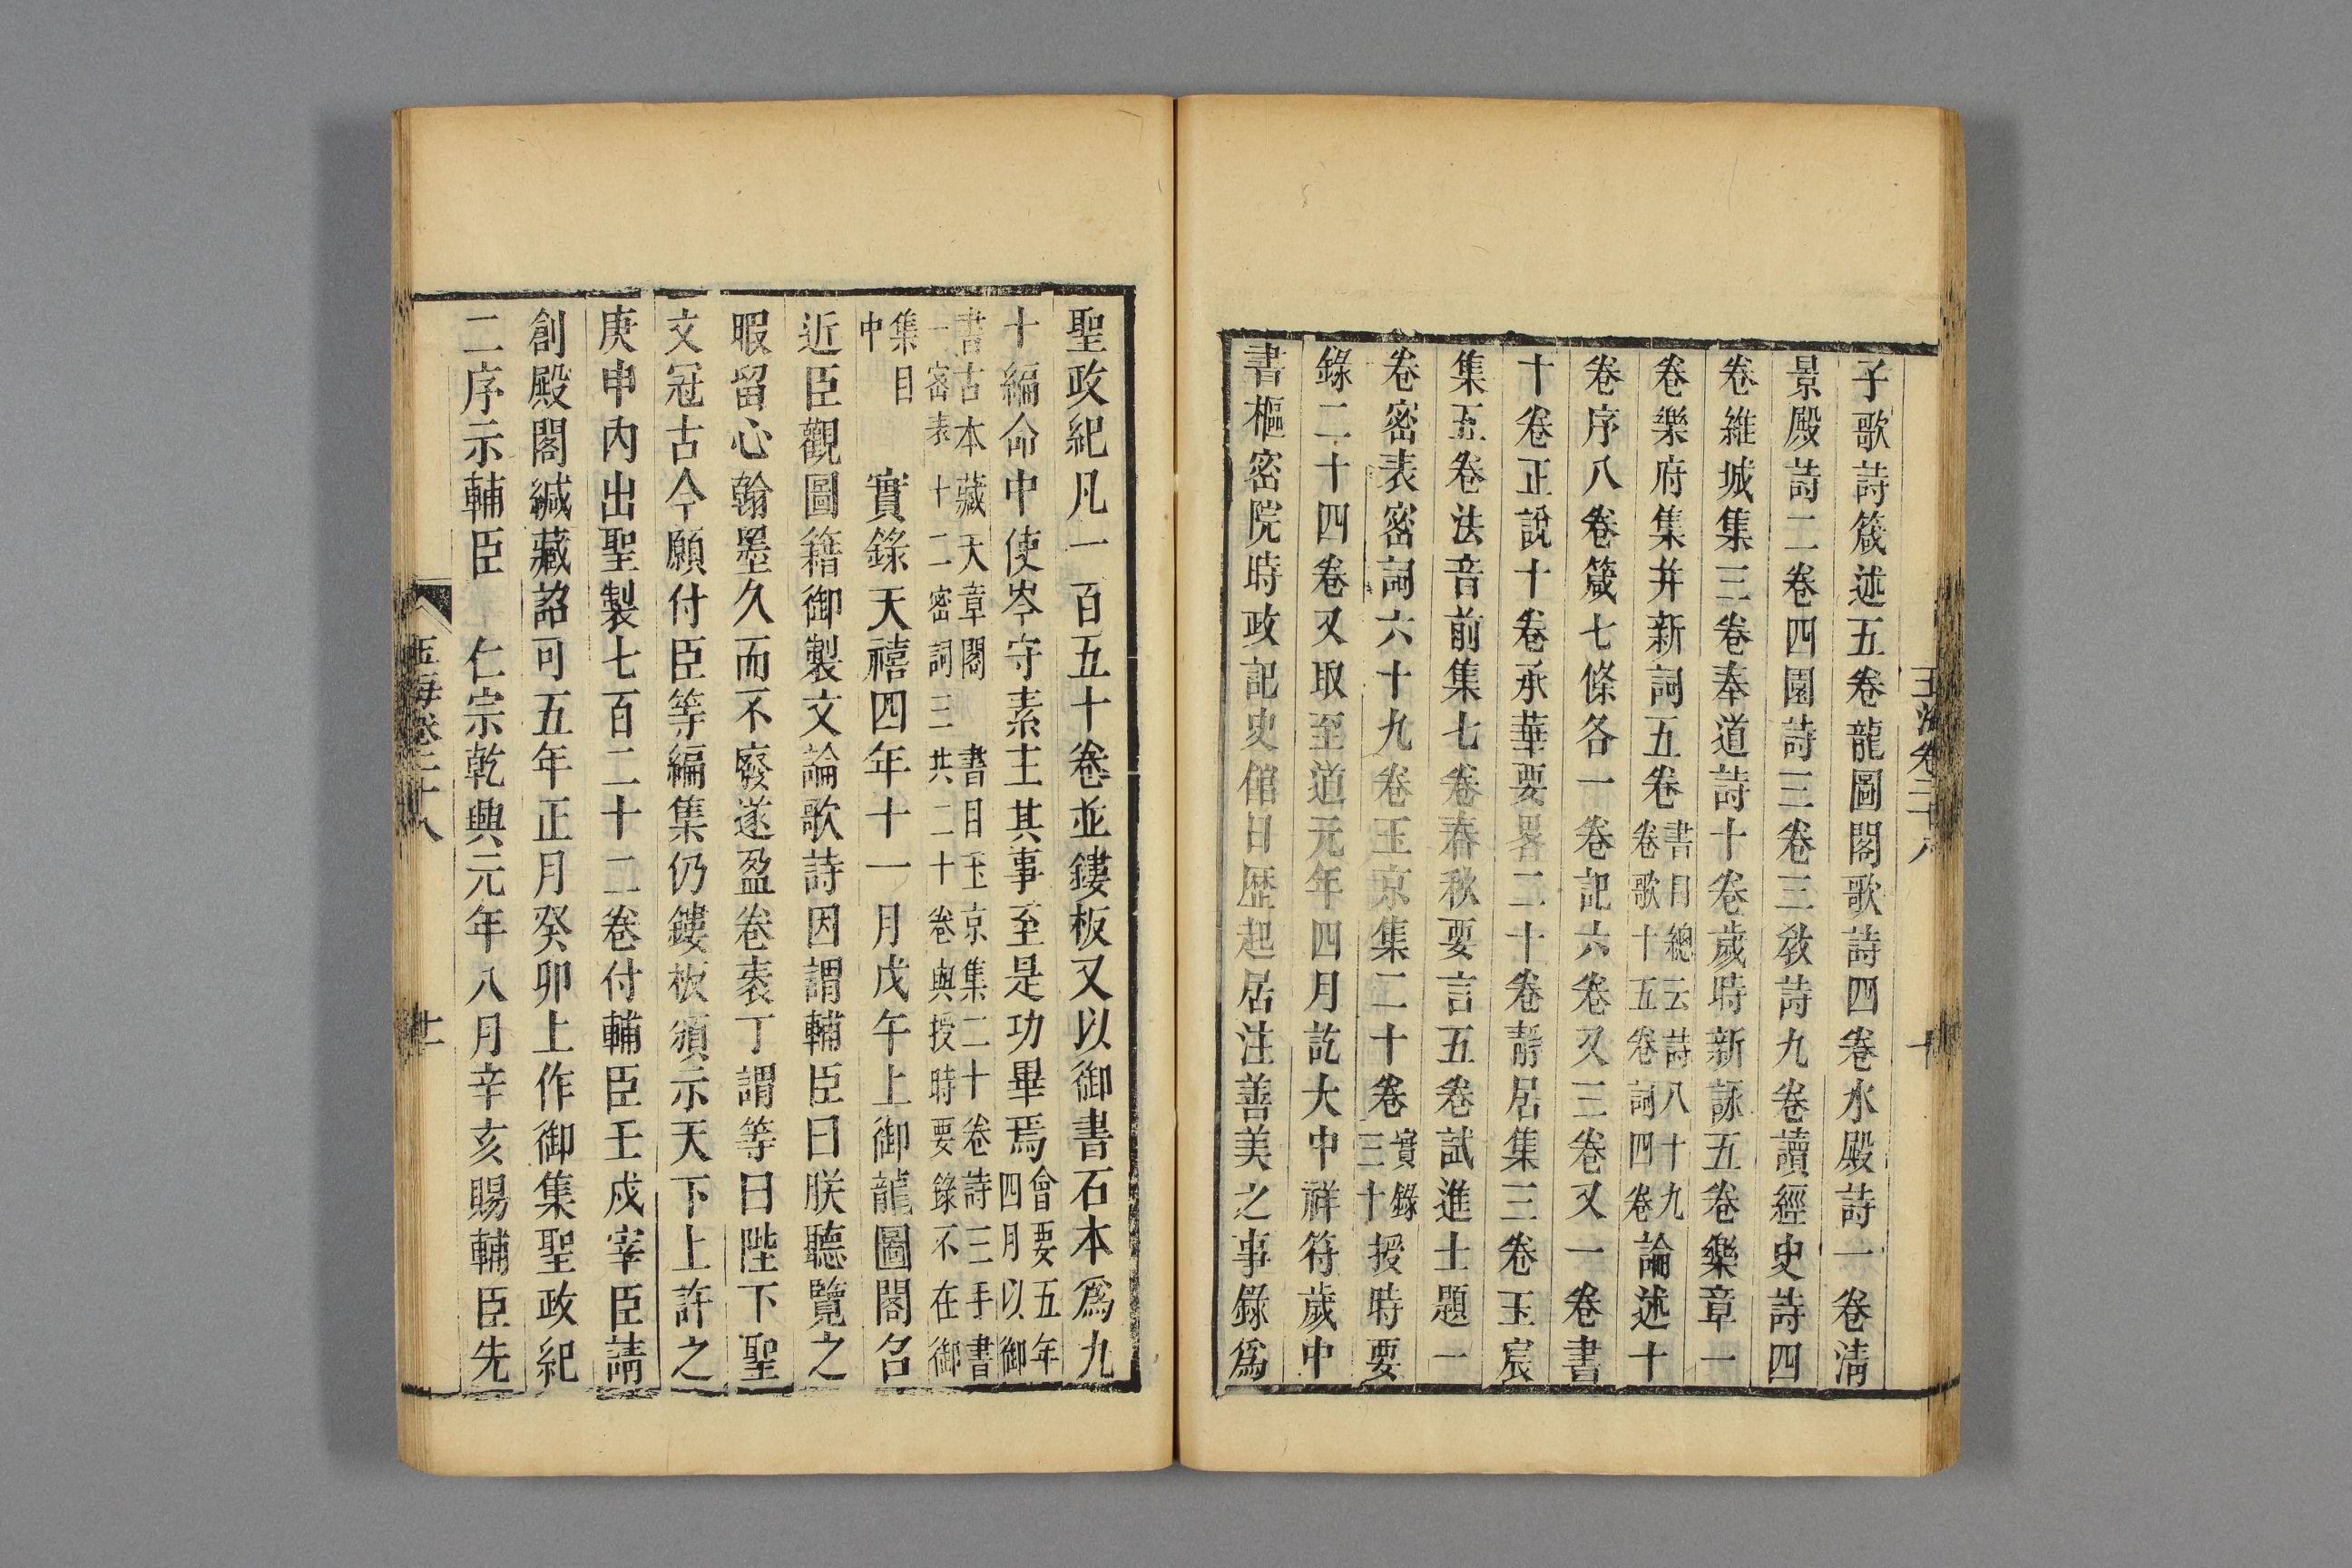 玉海卷二十八
十
子歌詩箴述五卷龍圖閣歌詩四卷水殿詩一卷清
景殿詩二卷四園詩三卷三敎詩九卷讀經史詩四
卷維城集三卷奉道詩十卷歲時新詠五卷樂章一
卷樂府集幷新詞五卷書目總云詩八十九卷歌十五卷詞四卷論述十
卷序八卷箴七條各一卷記六卷又三卷又一卷書
十卷正說十卷承華要畧二十卷靜居集三卷玉宸
集五卷法音前集七卷春秋要言五卷試進士題一
卷密表密詞六十九卷玉京集二十卷實錄三十授時要
錄二十四卷又取至道元年四月訖大中祥符歲中
書樞密院時政記史館日歷起居注善美之事錄爲
聖政紀凡一百五十卷並鏤板又以御書石本爲九
十編命中使岑守素主其事至是功畢焉會要五年四月以御
書古本藏天章閣 書目玉京集二十卷詩三手書一密表十二密詞三共二十卷與授時要錄不在御
集目中 實錄天禧四年十一月戊午上御龍圖閣召
近臣觀圖籍御製文論歌詩因謂輔臣曰朕聽覽之
暇留心翰墨久而不廢遂盈卷袠丁謂等曰陛下聖
文冠古今願付臣等編集仍鏤板頒示天下上許之
庚申內出聖製七百二十二卷付輔臣壬戌宰臣請
創殿閣緘藏詔可五年正月癸卯上作御集聖政紀
二序示輔臣 仁宗乾興元年八月辛亥賜輔臣先
玉海卷二十八
十一